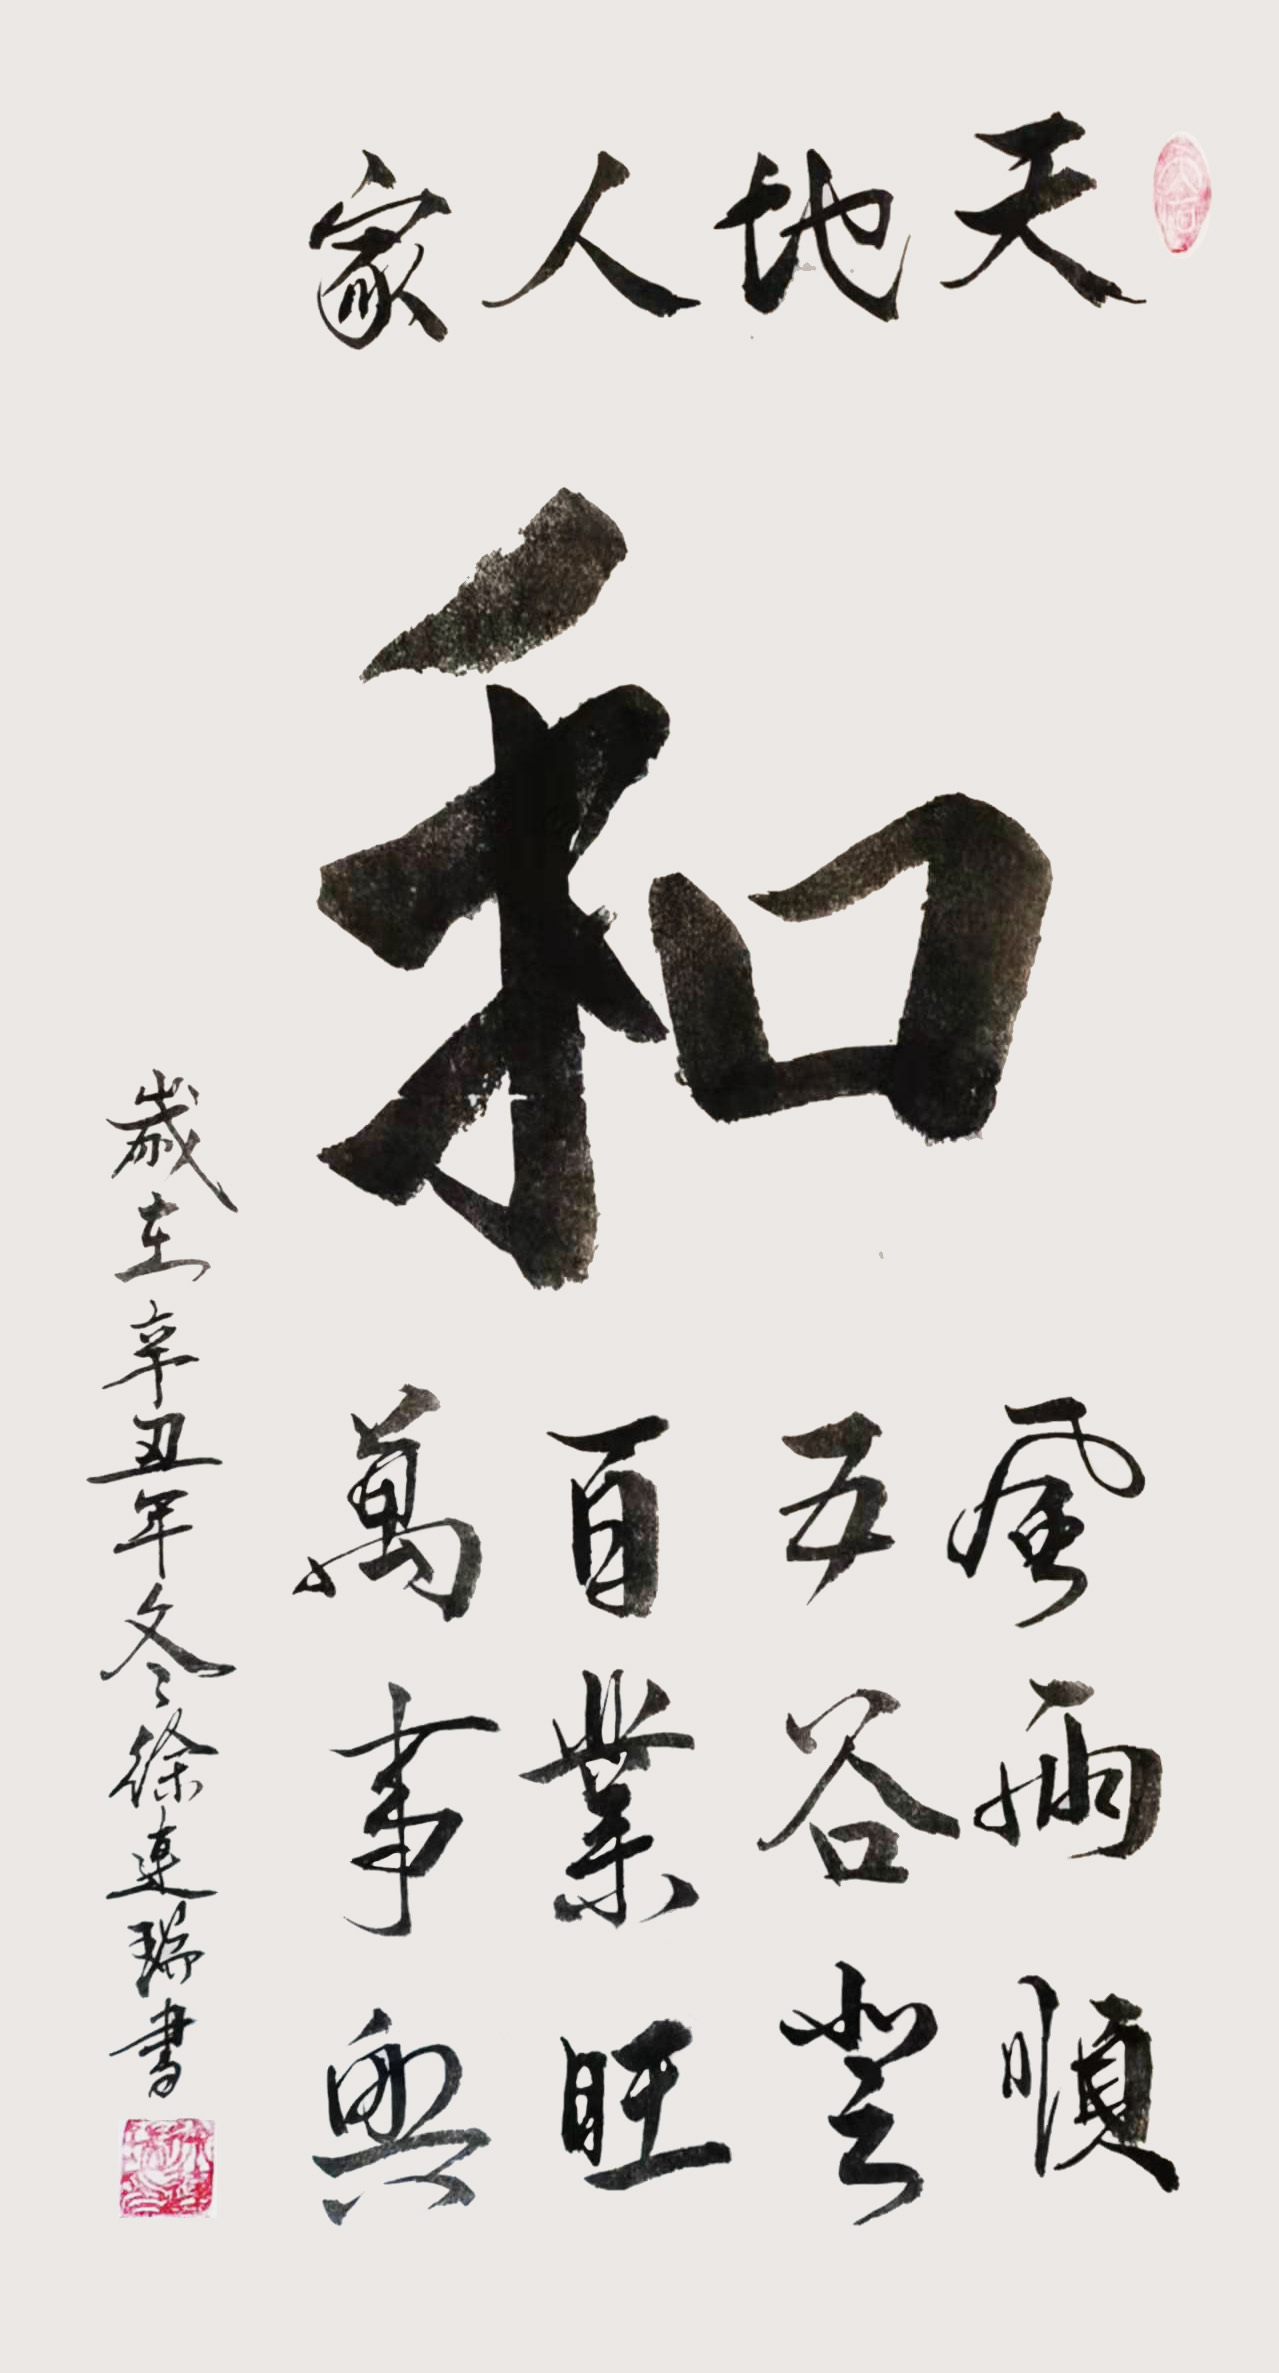 天地人家
和
風雨順
五谷登
百業旺
萬事興
歲在辛丑年冬徐連瑞書